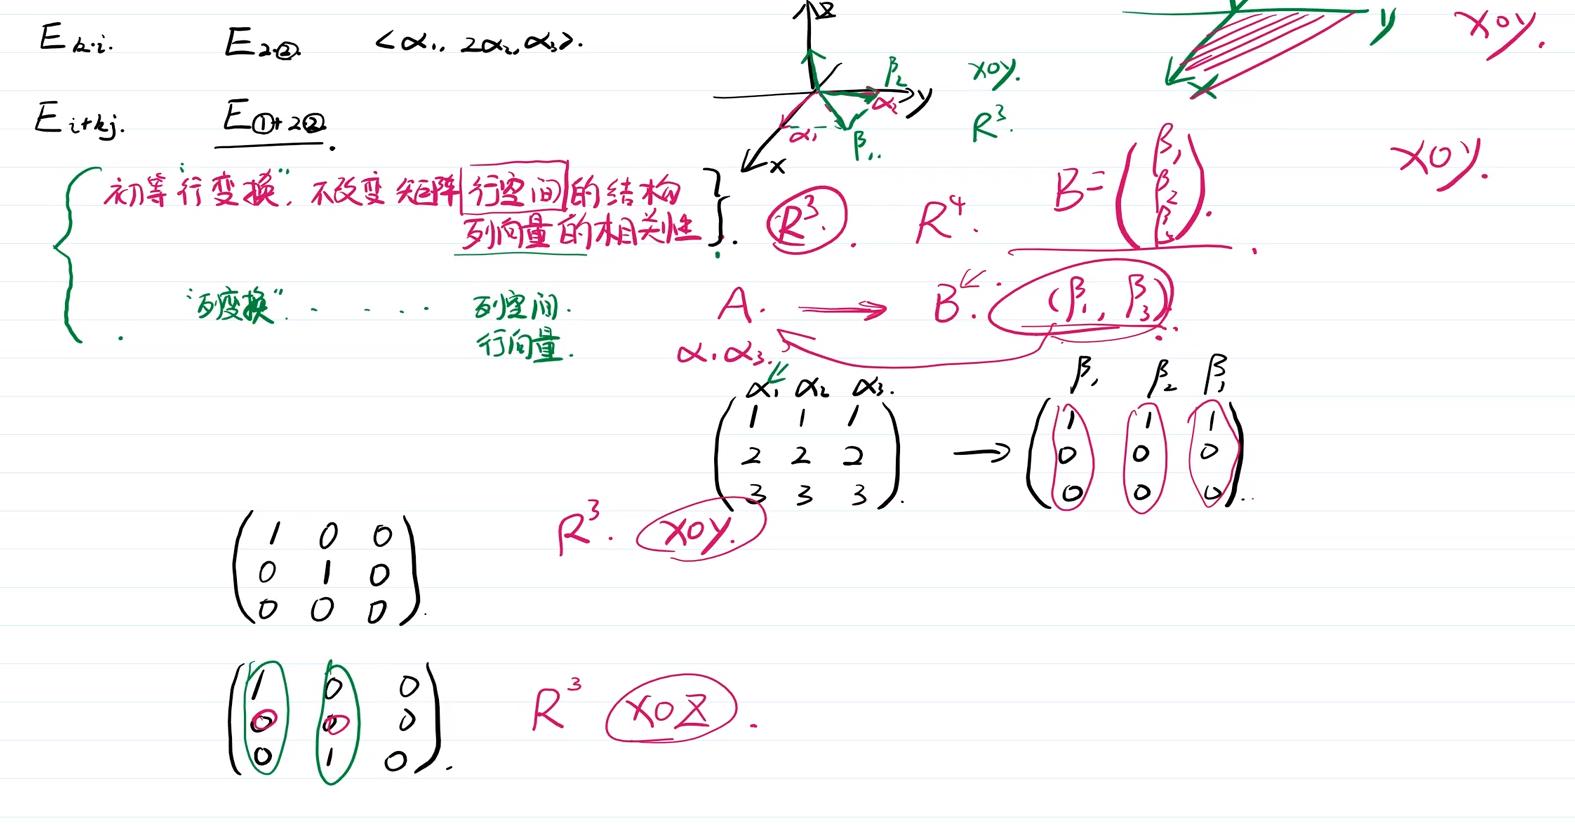 E k·i. E 2·②. <α₁, 2α₂, α₃>.
z
y
x
α₁
α₂
β₂
β₁.
xoy.
R³.
y
x
xoy.
E i+kj. E ①+2②.
初等"行变换", 不改变矩阵行空间的结构
列向量的相关性
R³. R⁴.
B = (β₁
β₂
β₃
β₄).
xoy.
"列变换" . . . . 列空间.
行向量.
A. → B. (β₁, β₃).
α₁ α₃.
α₁ α₂ α₃.
1 1 1
2 2 2
3 3 3
→
β₁ β₂ β₃
1 1 1
0 0 0
0 0 0
1 0 0
0 1 0
0 0 0
R³. xoy.
1 0 0
0 0 0
0 1 0
R³ xoz.